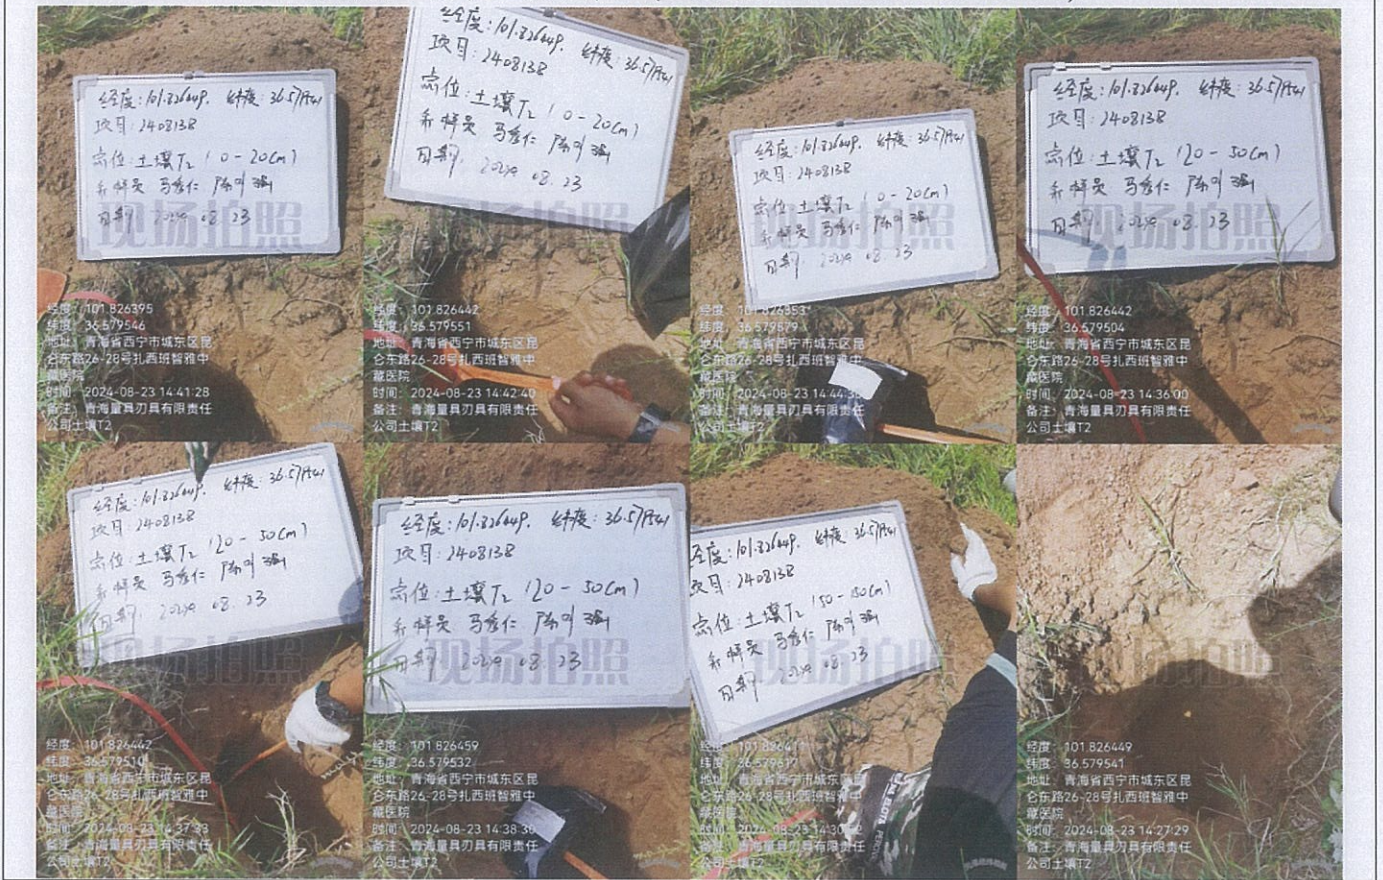 经度:101.826449. 纬度:36.579541
项目:2408138
点位:土壤T2(0-20cm)
采样员 马秀仁 陈
日期: 2024 08.23
现场拍照
经度: 101.826395
纬度: 36.579546
地址: 青海省西宁市城东区昆
仑东路26-28号扎西班智雅中
藏医院
时间: 2024-08-23 14:41:28
备注: 青海量具刃具有限责任
公司土壤T2
经度:101.826449. 纬度:36.579541
项目:2408138
点位:土壤T2(0-20cm)
采样员 马秀仁 陈
日期: 2024 08.23
现场拍照
经度: 101.826442
纬度: 36.579551
地址: 青海省西宁市城东区昆
仑东路26-28号扎西班智雅中
藏医院
时间: 2024-08-23 14:42:40
备注: 青海量具刃具有限责任
公司土壤T2
经度:101.826449. 纬度:36.579541
项目:2408138
点位:土壤T2(0-20cm)
采样员 马秀仁 陈
日期: 2024 08.23
现场拍照
经度: 101.826353
纬度: 36.579579
地址: 青海省西宁市城东区昆
仑东路26-28号扎西班智雅中
藏医院
时间: 2024-08-23 14:44:3
备注: 青海量具刃具有限责任
公司土壤T2
经度:101.826449. 纬度:36.579541
项目:2408138
点位:土壤T2(20-50cm)
采样员 马秀仁 陈
日期: 2024 08.23
现场拍照
经度: 101.826442
纬度: 36.579504
地址: 青海省西宁市城东区昆
仑东路26-28号扎西班智雅中
藏医院
时间: 2024-08-23 14:36:00
备注: 青海量具刃具有限责任
公司土壤T2
经度:101.826449. 纬度:36.579541
项目:2408138
点位:土壤T2(20-50cm)
采样员 马秀仁 陈
日期: 2024 08.23
现场拍照
经度: 101.826442
纬度: 36.579510
地址: 青海省西宁市城东区昆
仑东路26-28号扎西班智雅中
藏医院
时间: 2024-08-23 14:37:33
备注: 青海量具刃具有限责任
公司土壤T2
经度:101.826449. 纬度:36.579541
项目:2408138
点位:土壤T2(20-50cm)
采样员 马秀仁 陈
日期: 2024 08.23
现场拍照
经度: 101.826459
纬度: 36.579532
地址: 青海省西宁市城东区昆
仑东路26-28号扎西班智雅中
藏医院
时间: 2024-08-23 14:38:30
备注: 青海量具刃具有限责任
公司土壤T2
经度:101.826449. 纬度:36.579541
项目:2408138
点位:土壤T2(50-150cm)
采样员 马秀仁 陈
日期: 2024 08.23
现场拍照
经度: 101.8264
纬度: 36.579617
地址: 青海省西宁市城东区昆
仑东路26-28号扎西班智雅中
藏医院
时间: 2024-08-23 14:30:
备注: 青海量具刃具有限责任
公司土壤T2
现场拍照
经度: 101.826449
纬度: 36.579541
地址: 青海省西宁市城东区昆
仑东路26-28号扎西班智雅中
藏医院
时间: 2024-08-23 14:27:29
备注: 青海量具刃具有限责任
公司土壤T2